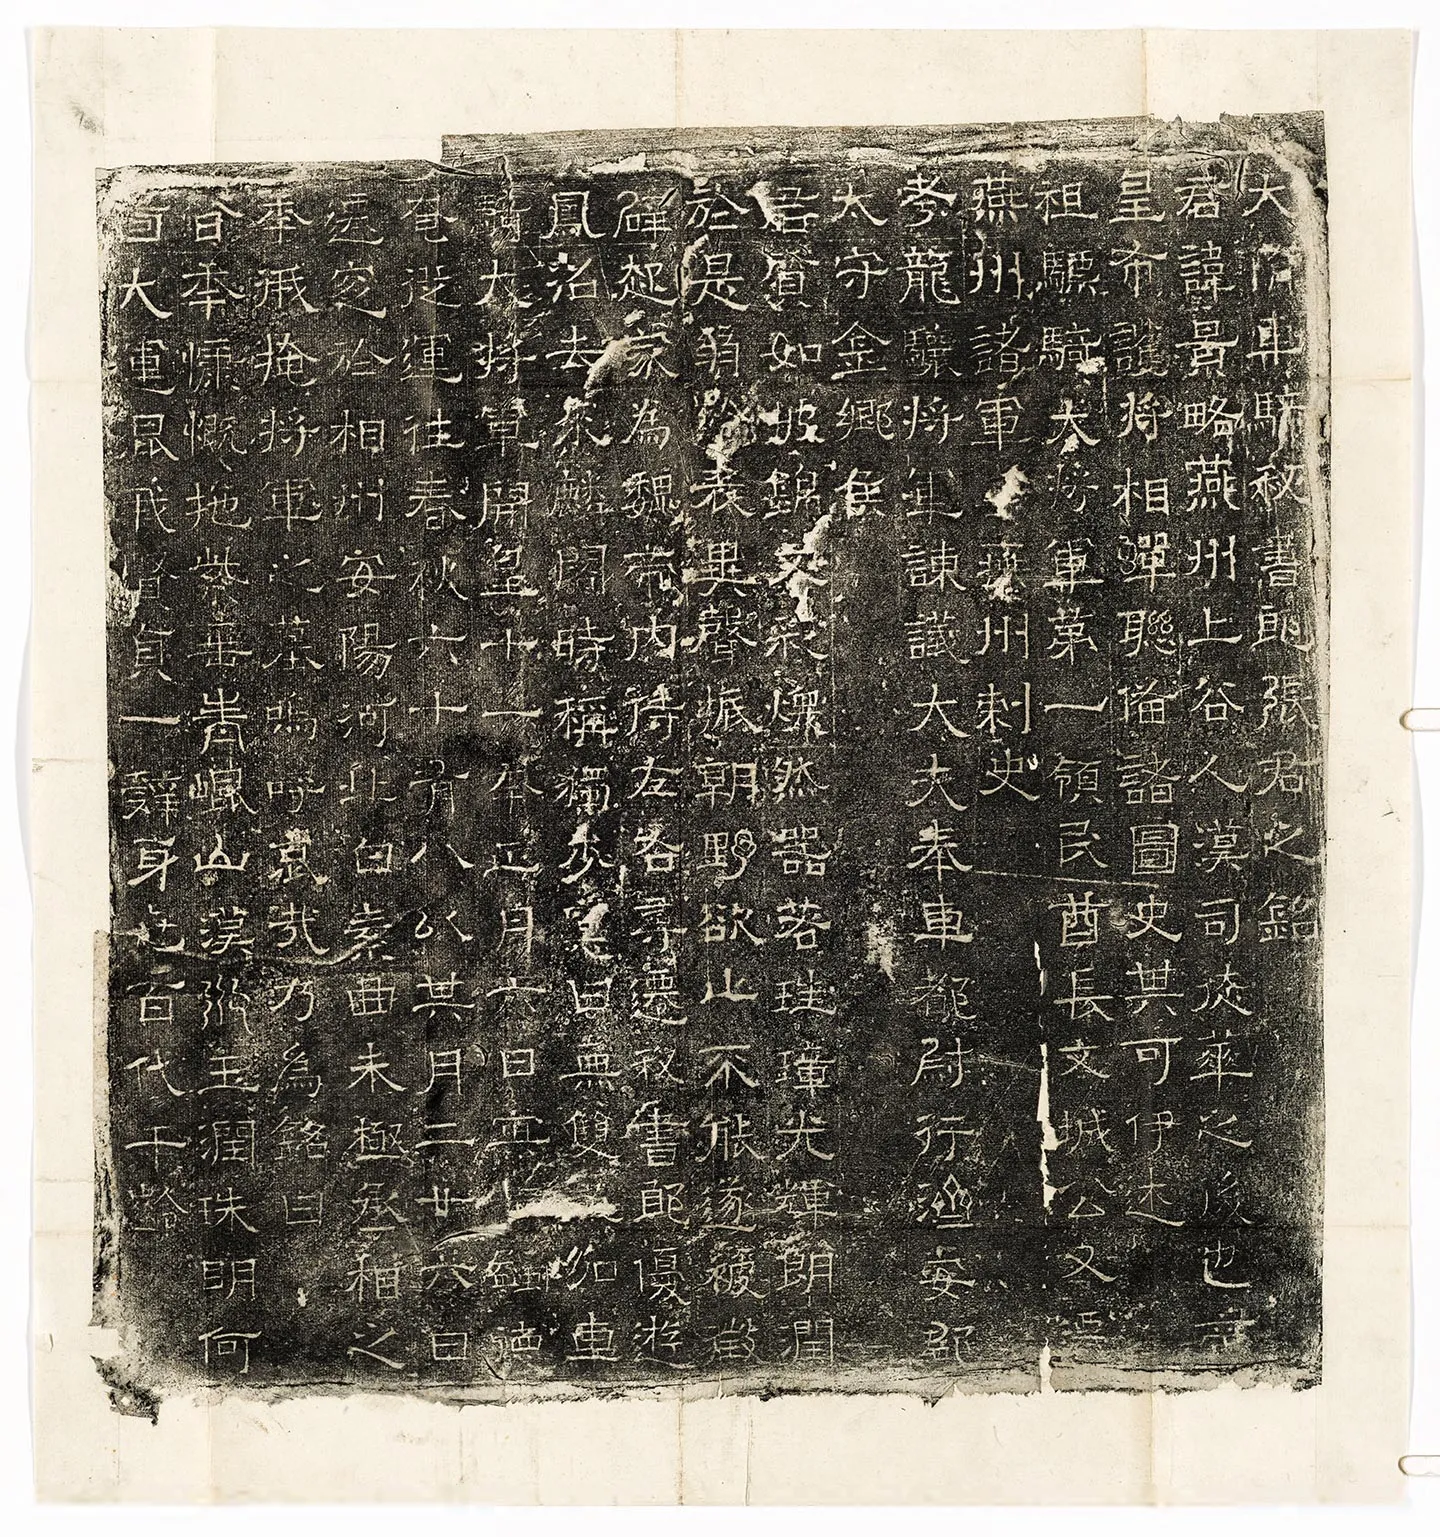 大隋車騎秘書郎張君之銘
君諱景略燕州上谷人漢司徒華之後也章
皇帝護將相蟬聯備諸圖史其可伊述
祖驃騎大將軍第一領民酋長文城公又
燕州諸軍燕州刺史
孝龍驤將軍諫議大夫奉車都尉行濟安郡
太守金鄉侯
君資如披錦文彩煥然器若珪璋光輝朗潤
於是羽儀表異聲振朝野欲止不能遂被徵
辟起家為魏帝內侍左右尋遷秘書郎優遊
鳳沼去來麟閣時稱獨步寔曰無雙加車
騎大將軍開皇十一年正月六日
奄從運往春秋六十有八以其月二廿六日
遷窆於相州安陽河北白素曲未極丞相之
奉祇掩將軍之墓嗚呼哀哉乃為銘曰
昔奉慷慨拖紫垂青崐山漢水玉潤珠明何
面大運昆我賢貞一辭身世百代千齡